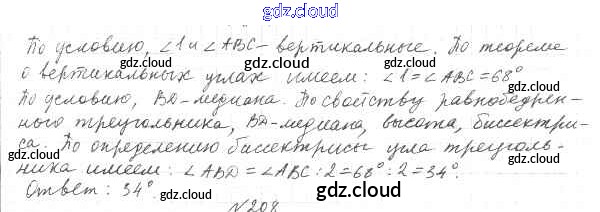 gdz.cloud
gdz.cloud
По условию, ∠1 и ∠ABC - вертикальные. По теореме
о вертикальных углах имеем: ∠1=∠ABC=68°
По условию, BD-медиана. По свойству равнобедрен-
ного треугольника, BD-медиана, высота, биссектри-
са. По определению биссектрисы угла треуголь-
ника имеем: ∠ABD=∠ABC:2=68°:2=34°.
Ответ: 34°.
№208
gdz.cloud
gdz.cloud